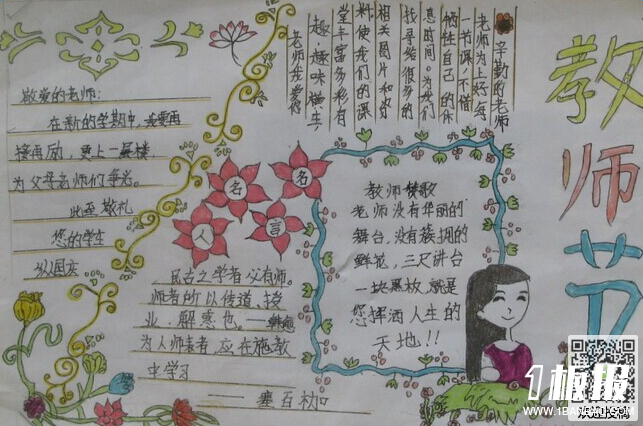 教师节
辛勤的老师
老师为上好每
一节课,不惜
牺牲自己的休
息时间。为我们
找寻给很多的
相关图片和资
料,使我们的课
堂丰富多彩,有
趣,趣味横生
老师我爱你
敬爱的老师:
在新的学期中,我要再
接再励,更上一层楼
为父母老师们争光。
此至敬礼
您的学生
名人名言
古之学者必有师。
师者所以传道,授
业,解惑也。——韩愈
为人师表者,应在施教
中学习
教师赞歌
老师没有华丽的
舞台,没有簇拥的
鲜花,三尺讲台
一块黑板就是
您挥洒人生的
天地!!
1板报
WWW.1BANBAO.COM
欢迎投稿